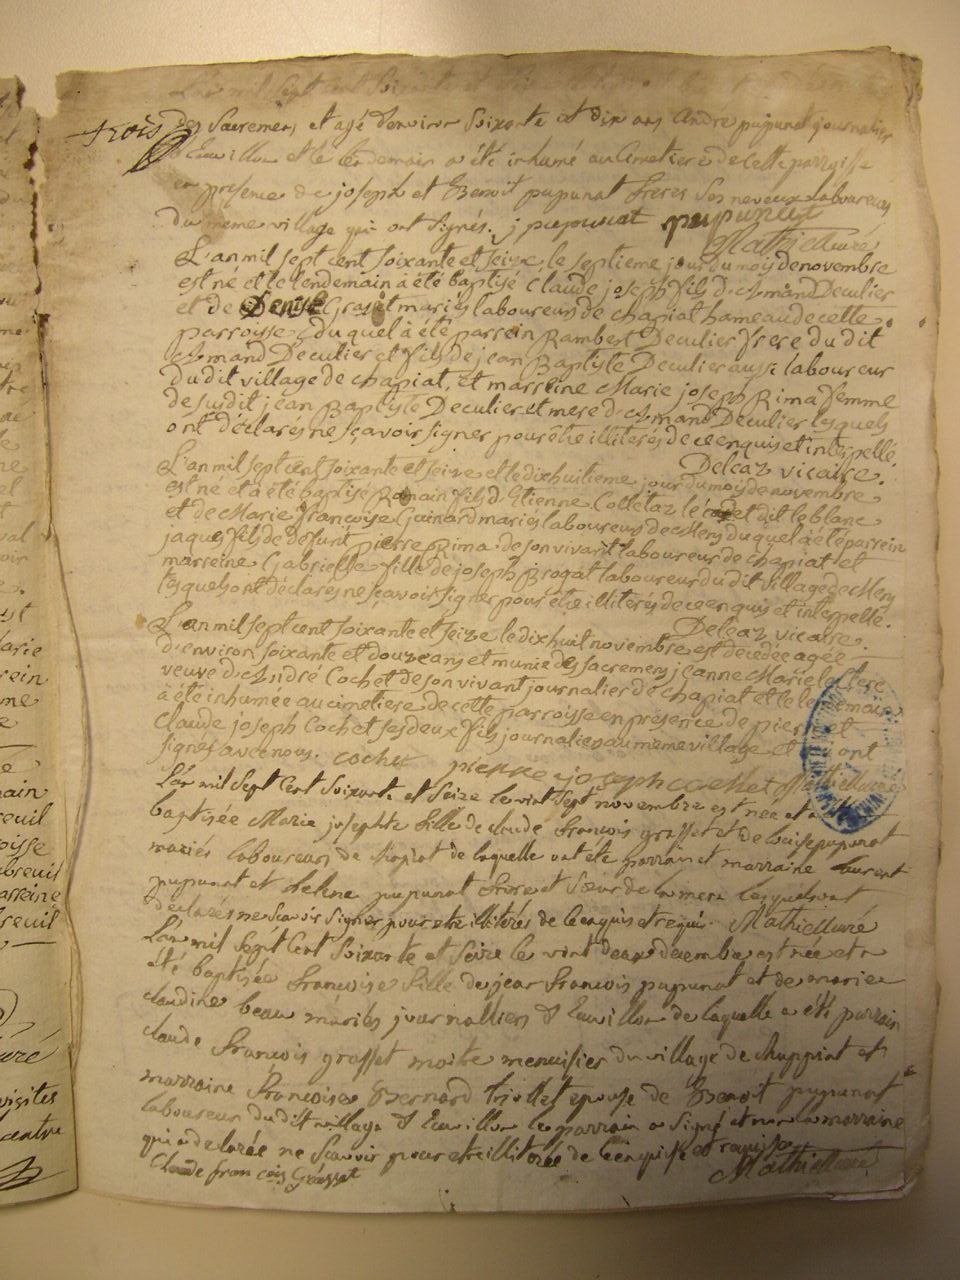 trois
des Sacremens et agé d'environ Soixante et dix ans André pupunat journalier
et le lendemain a été inhumé au Cimetiere de cette parroisse
en presence de joseph et Benoit pupunat freres Ses neveux laboureurs
du meme village qui ont signés. j pupunat pupunat
Mathieu curé
L'an mil sept cent soixante et seize, le septieme jour du moÿ de novembre
est né et le lendemain à été baptisé Claude joseph fils d'Amand Deculier
et de Denise Grasset mariés laboureurs de chapiat hameau de cette
parroisse, duquel à été parrein Rambert Deculier frere du dit
Amand Deculier et fils de jean Baptiste Deculier aussi laboureur
du dit village de chapiat, et marreine Marie joseph Rima femme
de susdit jean Baptiste Deculier et mere d'Amand Deculier lesquels
ont déclarés ne sçavoir signer pour être illiterés de ce enquis et interpellé.
Delcaz vicaire.
L'an mil sept cent soixante et seize et le dixhuitieme jour du moÿ de novembre
est né et à été baptisé Romain fils d'Etienne Colletaz le cadet dit le blanc
et de Marie françoise Guinard mariés laboureurs de Mens duquel à été parrein
jaques fils de defunt pierre Rima de son vivant laboureur de chapiat et
marreine Gabrielle fille de joseph Brogat laboureur du dit village de Mens
lesquels ont déclarés ne sçavoir signer pour être illiterés de ce enquis et interpellé.
Delcaz vicaire.
L'an mil sept cent soixante et seize le dixhuit novembre est decedée agée
d'environ soixante et douze ans et munie des sacremens jeanne Marie
veuve d'André Cochet de son vivant journalier de chapiat et le lendemain
à été inhumée au cimetiere de cette parroisse en présence de pierre et
Claude joseph Cochet ses deux fils journaliers au meme village et ont
signés avec nous. cochet pierre joseph cochet Mathieu curé
L'an mil Sept Cent Soixante et Seize le vint Sept novembre est née et a été
baptisée Marie josephte fille de claude françois grasset et de Loise pupunat
mariés laboureurs de chapiat de laquelle ont été parrain et marraine laurent
pupunat et helene pupunat frere et Sœur de la mere lesquels ont
declarés ne Scavoir Signer pour etre illiterés de ce enquis et requis. Mathieu curé
L'an mil Sept Cent Soixante et Seize le vint deux decembre est née et a
été baptisée françoise fille de jean françois pupunat et de marie
claudine beau mariés journalliers de laquelle a été parrain
claude françois grasset moitre menuisier du village de chappiat et
marraine françoise Bernard epouse de Benoit pupunat
laboureur du dit village le parrain a Signé et non la marraine
qui a declarée ne Scavoir pour etre illiterée de ce enquise et requise
Claude francois Grasset Mathieu curé